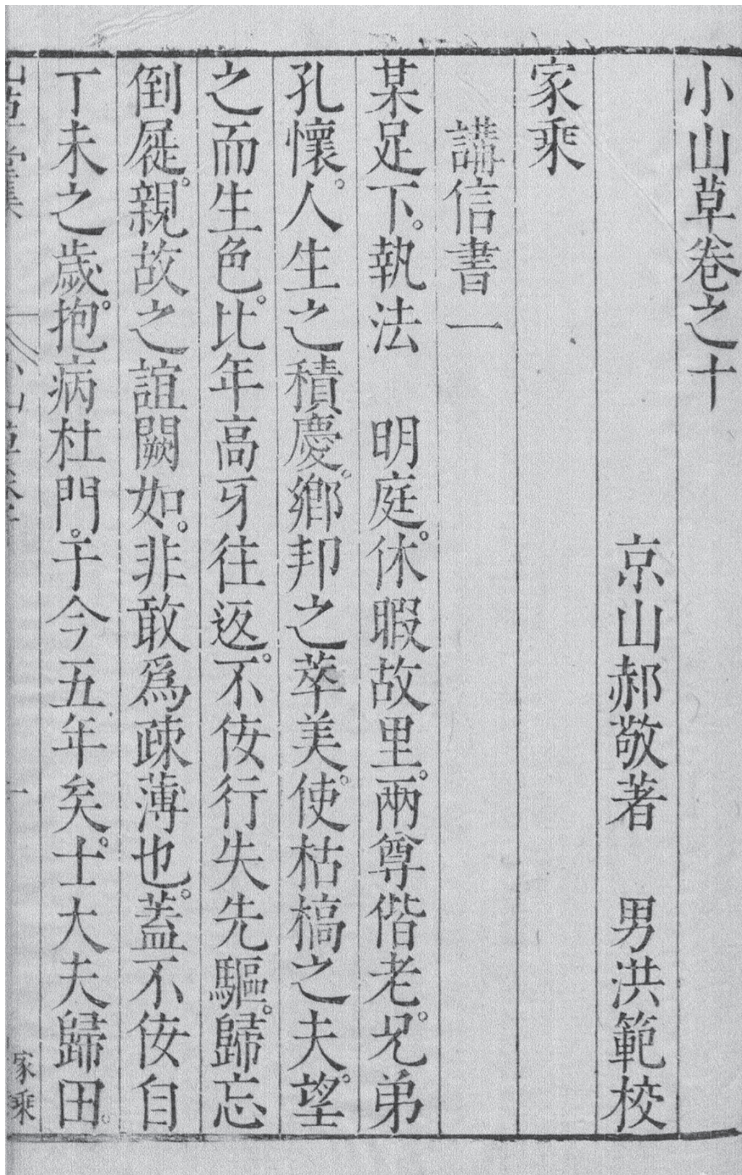 小山草卷之十
京山郝敬著　男洪範校
家乘
講信書一
某足下。執法　明庭。休暇故里。兩尊偕老。兄弟
孔懷。人生之積慶。鄉邦之萃美。使枯槁之夫。望
之而生色。比年高牙往返。不佞行失先驅。歸忘
倒屣。親故之誼闕如。非敢爲疎薄也。蓋不佞自
丁未之歲。抱病杜門。于今五年矣。士大夫歸田。
家乘